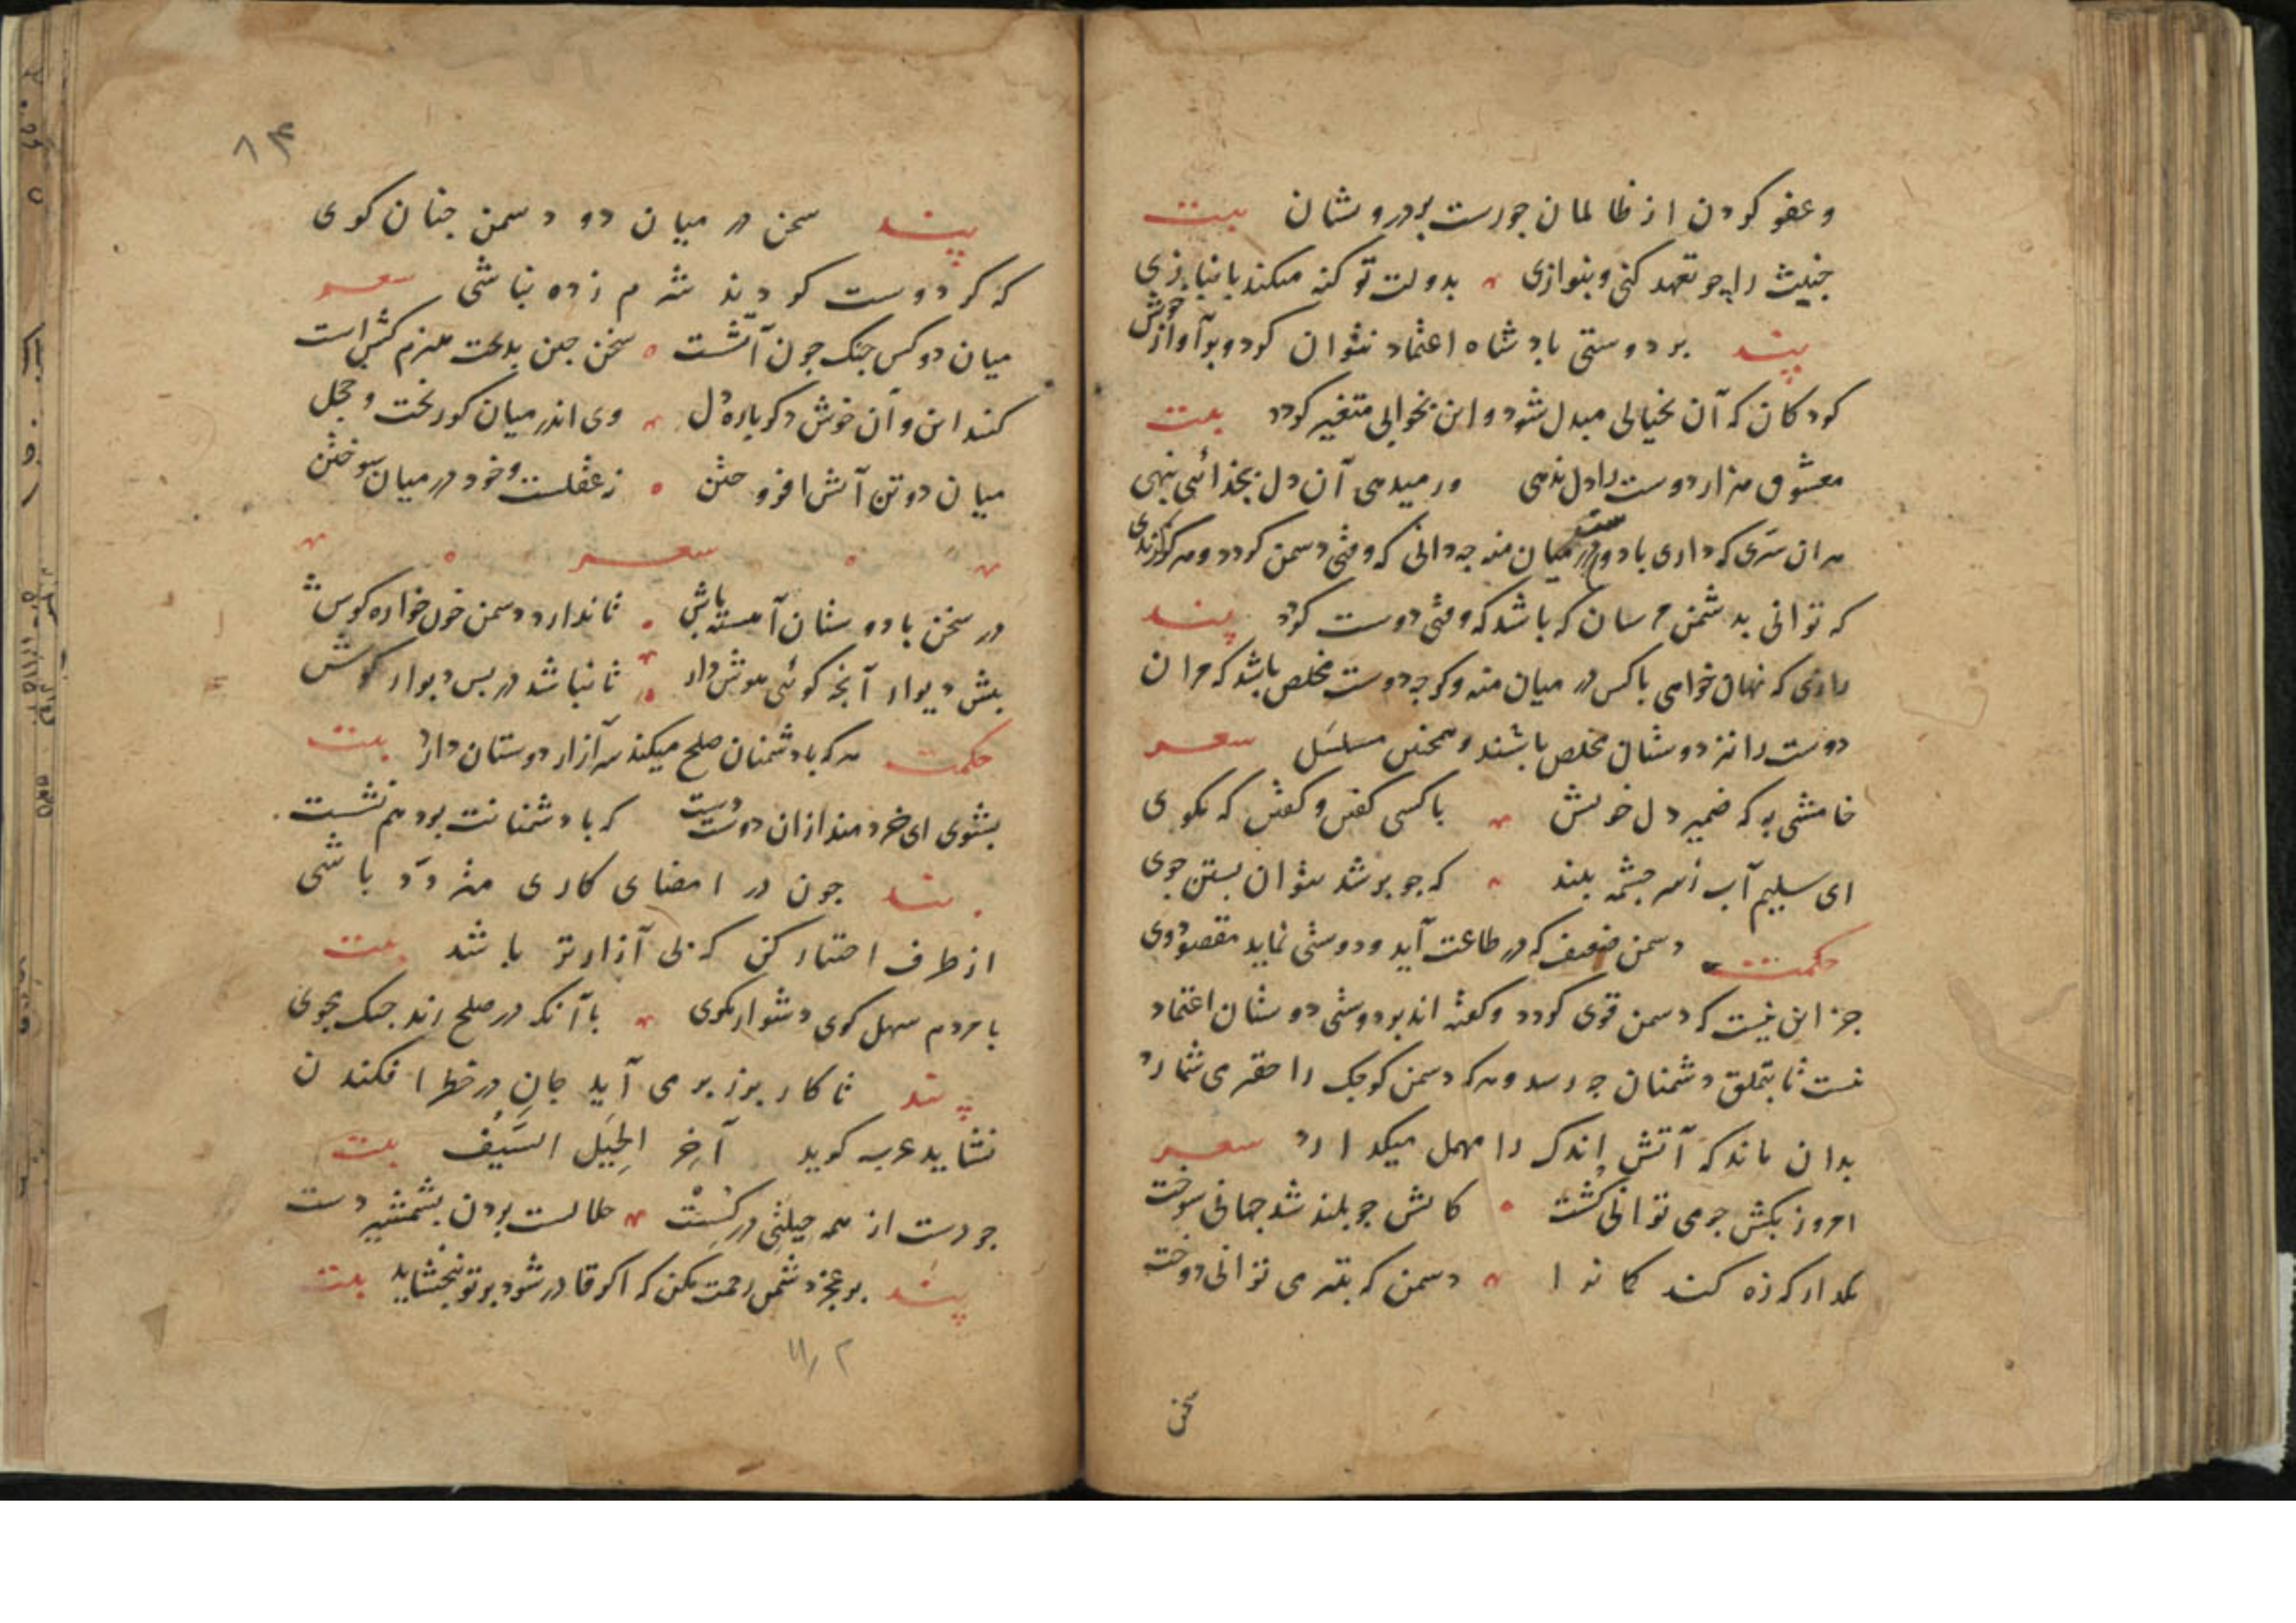 و عفو کردن از ظالمان جورست بر درویشان بیت
خبیث را چو تعهد کنی و بنوازی بدولت تو کنه میکند بانبازی
پند بر دوستی بادشاه اعتماد نتوان کرد و بر آواز خوش
کودکان که آن بخیالی مبدل شود و این بخوابی متغیر کردد بیت
معشوق هزار دوست را دل ندهی ور میدهی آن دل بجدائی بنهی
هر ان سری که داری با دوست در میان منه چه دانی که وقتی دشمن کردد و هر کزندی
که توانی بدشمن مرسان که باشد که وقتی دوست کردد پند
رازی که نهان خواهی با کس در میان منه و کرچه دوست مخلص باشد که مر ان
دوست را نیز دوستان مخلص باشند و همچنین مسلسل شعر
خامشی به که ضمیر دل خویش با کسی کفتن و کفتن که مکوی
ای سلیم آب ز سر چشمه ببند که چو بر شد نتوان بستن جوی
حکمت دشمن ضعیف که در طاعت آید و دوستی نماید مقصود وی
جز این نیست که دشمن قوی کردد و کفته اند بر دوستی دوستان اعتماد
نیست تا بتملق دشمنان چه رسد و هر که دشمن کوچک را حقیر می شمارد
بدان ماند که آتش اندک را مهمل میکذارد شعر
امروز بکش چو می توانی کشت کاتش چو بلند شد جهانی سوخت
مکذار که زه کند کمانرا دشمن که بتیر می توانی دوخت
سخن
۱۴
پند سخن در میان دو دشمن چنان کوی
که کر دوست کردند شرم زده نباشی شعر
میان دو کس جنک چون آتشست سخن چین بدبخت هیزم کش است
کنند این و آن خوش دکر باره دل وی اندر میان کور بخت و خجل
میان دو تن آتش افروختن ز عقلست و خود در میان سوختن
شعر
در سخن با دوستان آهسته باش تا ندارد دشمن خون خواره کوش
پیش دیوار آنچه کوئی هوش دار تا نباشد در پس دیوار کوش
حکمت هر که با دشمنان صلح میکند سر آزار دوستان دارد بیت
بشوی ای خردمند ازان دوست دست که با دشمنانت بود هم نشست
پند چون در امضای کاری متردد باشی
از طرف اختیار کن که بی آزارتر باشد بیت
با مردم سهل کوی دشوار مکوی با آنکه در صلح زند جنک مجوی
پند تا کار بزر برمی آید جان در خطر افکندن
نشاید عرب کوید آخر الحیل السیف بیت
چو دست از همه حیلتی در کسست حلالست بردن بشمشیر دست
پند بر عجز دشمن رحمت مکن که اکر قادر شود بر تو نبخشاید بیت